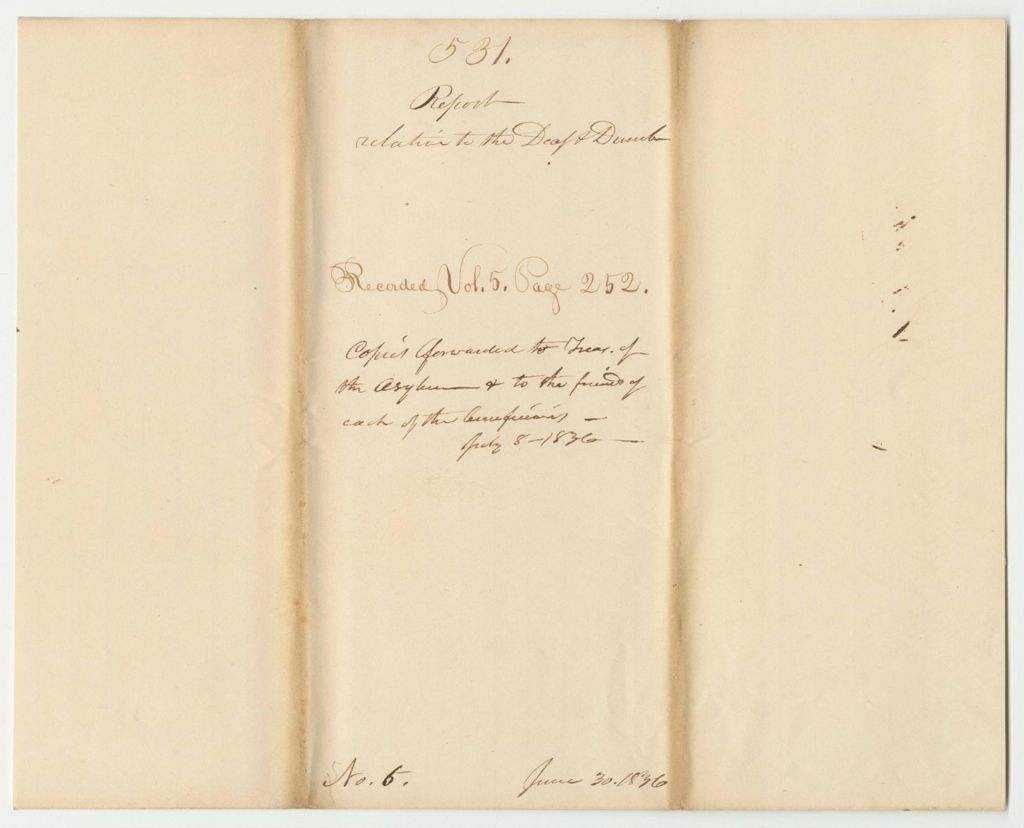 531.
Report
relative to the Deaf & Dumb
Recorded Vol. 5. Page 252.
Copies forwarded to Treas. of
the Asylum & to the friends of
each of the beneficiaries —
July 8 - 1836 —
No. 6. June 30. 1836